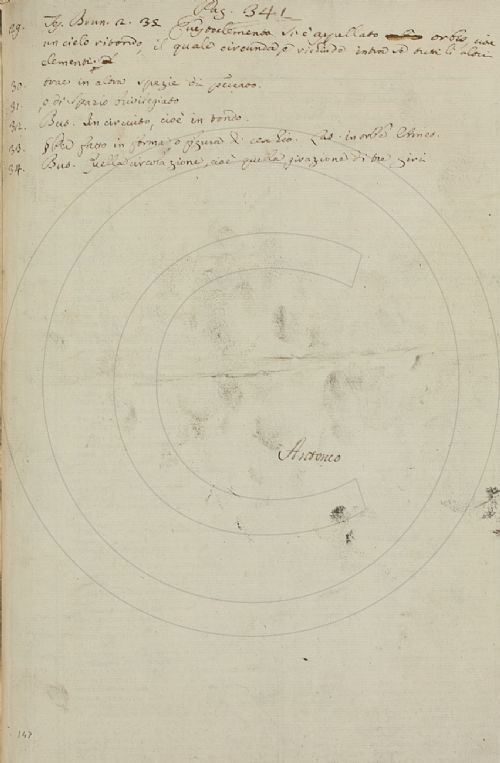 Pag. 341
29. Tes. Brun. 2. 38 Questo elemento si è appellato orbis, cioè
un cielo ritondo, il quale circunda, e richiude intra sé tutti li altri
elementi
30. trae in altra spezie di peccato.
31. o di spazio privilegiato
32. But. In circuito, cioè in tondo.
33. fatto in forma, o figura di cerchio. Lat. in orbe
34. But. Nella circolazione, cioè quella girazione di tre giri
Antonio
147